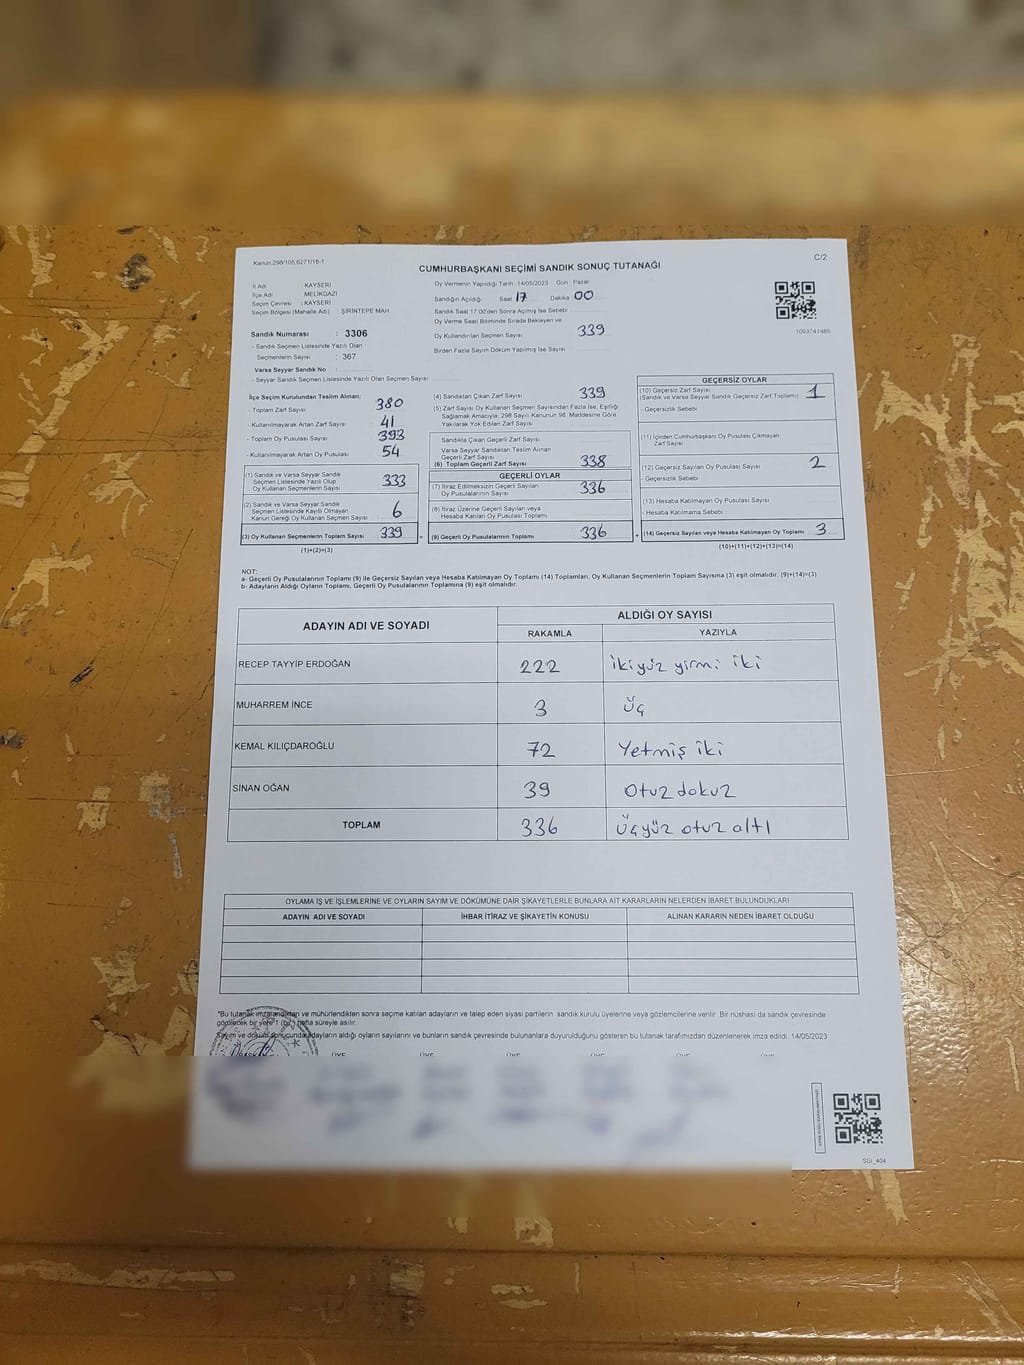 Kanun:298/105,6271/18-1
C/2
CUMHURBAŞKANI SEÇİMİ SANDIK SONUÇ TUTANAĞI
İl Adı : KAYSERİ
İlçe Adı : MELİKGAZİ
Seçim Çevresi : KAYSERİ
Seçim Bölgesi (Mahalle Adı) : ŞİRİNTEPE MAH.
Sandık Numarası : 3306
- Sandık Seçmen Listesinde Yazılı Olan
Seçmenlerin Sayısı : 367
Varsa Seyyar Sandık No :
- Seyyar Sandık Seçmen Listesinde Yazılı Olan Seçmen Sayısı:
Oy Vermenin Yapıldığı Tarih : 14/05/2023 Gün : Pazar
Sandığın Açıldığı: Saat 17 Dakika 00
Sandık Saat 17.00'den Sonra Açılmış İse Sebebi
Oy Verme Saati Bitiminde Sırada Bekleyen ve
Oy Kullandırılan Seçmen Sayısı: 339
Birden Fazla Sayım Döküm Yapılmış İse Sayısı:
İlçe Seçim Kurulundan Teslim Alınan;
- Toplam Zarf Sayısı 380
- Kullanılmayarak Artan Zarf Sayısı 41
- Toplam Oy Pusulası Sayısı 393
- Kullanılmayarak Artan Oy Pusulası 54
(1) Sandık ve Varsa Seyyar Sandık
Seçmen Listesinde Yazılı Olup
Oy Kullanan Seçmenlerin Sayısı 333
(2) Sandık ve Varsa Seyyar Sandık
Seçmen Listesinde Kayıtlı Olmayan
Kanun Gereği Oy Kullanan Seçmen Sayısı 6
(3) Oy Kullanan Seçmenlerin Toplam Sayısı 339
(1)+(2)=(3)
(4) Sandıktan Çıkan Zarf Sayısı 339
(5) Zarf Sayısı Oy Kullanan Seçmen Sayısından Fazla İse, Eşitliği
Sağlamak Amacıyla, 298 Sayılı Kanunun 98. Maddesine Göre
Yakılarak Yok Edilen Zarf Sayısı
Sandıkta Çıkan Geçerli Zarf Sayısı
Varsa Seyyar Sandıktan Teslim Alınan
Geçerli Zarf Sayısı
(6) Toplam Geçerli Zarf Sayısı 338
GEÇERLİ OYLAR
(7) İtiraz Edilmeksizin Geçerli Sayılan
Oy Pusulalarının Sayısı 336
(8) İtiraz Üzerine Geçerli Sayılan veya
Hesaba Katılan Oy Pusulası Toplamı
= (9) Geçerli Oy Pusulalarının Toplamı 336
GEÇERSİZ OYLAR
(10) Geçersiz Zarf Sayısı
(Sandık ve Varsa Seyyar Sandık Geçersiz Zarf Toplamı) 1
- Geçersizlik Sebebi
(11) İçinden Cumhurbaşkanı Oy Pusulası Çıkmayan
Zarf Sayısı
(12) Geçersiz Sayılan Oy Pusulası Sayısı 2
- Geçersizlik Sebebi
(13) Hesaba Katılmayan Oy Pusulası Sayısı
- Hesaba Katılmama Sebebi
+ (14) Geçersiz Sayılan veya Hesaba Katılmayan Oy Toplamı 3
(10)+(11)+(12)+(13)=(14)
NOT:
a- Geçerli Oy Pusulalarının Toplamı (9) ile Geçersiz Sayılan veya Hesaba Katılmayan Oy Toplamı (14) Toplamları, Oy Kullanan Seçmenlerin Toplam Sayısına (3) eşit olmalıdır. (9)+(14)=(3)
b- Adayların Aldığı Oyların Toplamı, Geçerli Oy Pusulalarının Toplamına (9) eşit olmalıdır.
ADAYIN ADI VE SOYADI ALDIĞI OY SAYISI
RAKAMLA YAZIYLA
RECEP TAYYİP ERDOĞAN 222 ikiyüz yirmi iki
MUHARREM İNCE 3 üç
KEMAL KILIÇDAROĞLU 72 Yetmiş iki
SİNAN OĞAN 39 otuz dokuz
TOPLAM 336 üçyüz otuz altı
OYLAMA İŞ VE İŞLEMLERİNE VE OYLARIN SAYIM VE DÖKÜMÜNE DAİR ŞİKAYETLERLE BUNLARA AİT KARARLARIN NELERDEN İBARET BULUNDUKLARI
ADAYIN ADI VE SOYADI İHBAR İTİRAZ VE ŞİKAYETİN KONUSU ALINAN KARARIN NEDEN İBARET OLDUĞU
"Bu tutanak imzalandıktan ve mühürlendikten sonra seçime katılan adayların ve talep eden siyasi partilerin sandık kurulu üyelerine veya gözlemcilerine verilir. Bir nüshası da sandık çevresinde
görülecek bir yere 1 (bir) hafta süreyle asılır.
Sayım ve döküm sonucunda adayların aldığı oyların sayılarını ve bunların sandık çevresinde bulunanlara duyurulduğunu gösteren bu tutanak tarafımızdan düzenlenerek imza edildi. 14/05/2023
ÜYE ÜYE ÜYE ÜYE ÜYE
SSİ_404